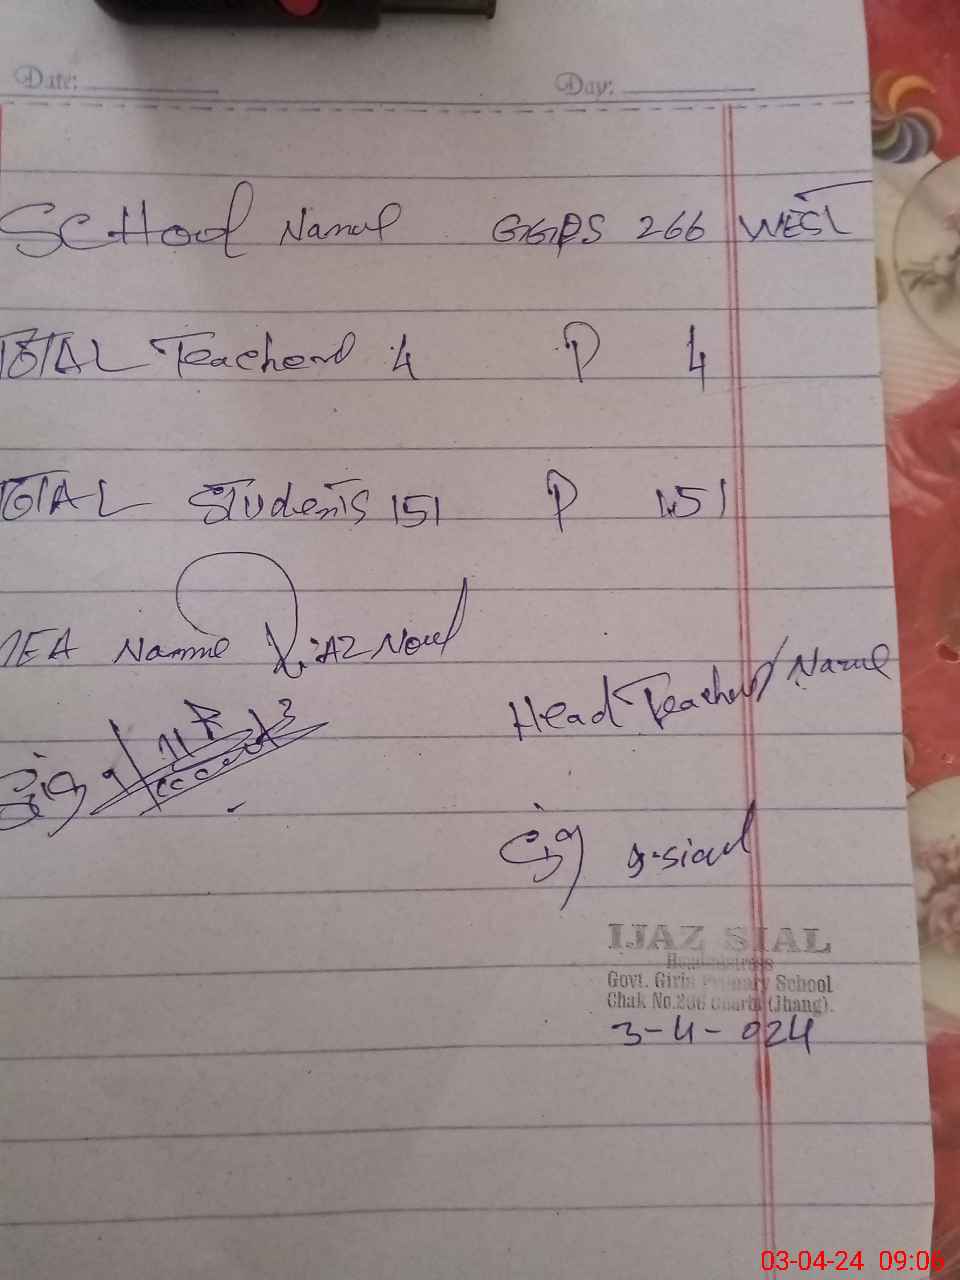 Date: Day:
SCHool Name GGPS 266 WEST
TOTAL Teachers 4 P 4
TOTAL Students 151 P 151
Name
Head Teacher/Name
Sig
Sig
IJAZ SIAL
Headmistress
Govt. Girls Primary School
Chak No.266 (Jhang).
3-4-024
03-04-24 09:06